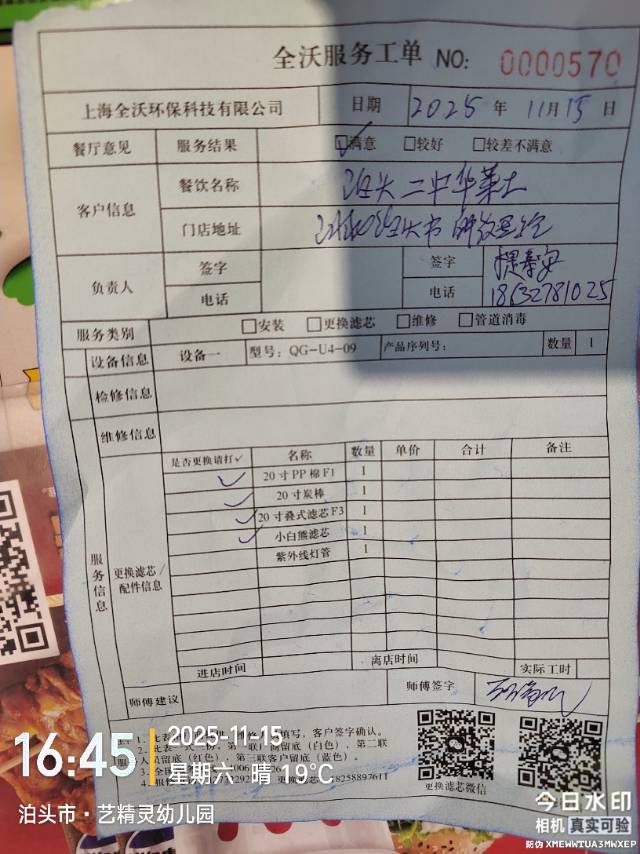 全沃服务工单 NO: 0000570
上海全沃环保科技有限公司 日期 2025年 11月15日
餐厅意见 服务结果 ☑满意 □较好 □较差不满意
客户信息 餐饮名称 泊头二中华莱士
门店地址
负责人 签字 签字
电话 电话 18632781025
服务类别 □安装 □更换滤芯 □维修 □管道消毒
设备信息 设备一 型号: QG-U4-09 产品序列号: 数量 1
检修信息
维修信息
是否更换请打✓ 名称 数量 单价 合计 备注
✓ 20寸PP棉F1 1
✓ 20寸炭棒 1
✓ 20寸叠式滤芯F3 1
✓ 小白熊滤芯 1
紫外线灯管 1
服务信息 更换滤芯/配件信息
进店时间 离店时间 实际工时
师傅建议 师傅签字
填写，客户签字确认。
留底（白色），第二联
人员留底（红色），第三联客户留底（蓝色）。
更换滤芯微信
16:45
2025-11-15
星期六 晴 19°C
泊头市·艺精灵幼儿园
今日水印
相机 真实可验
防伪 XMEWWTUA3MWXEP